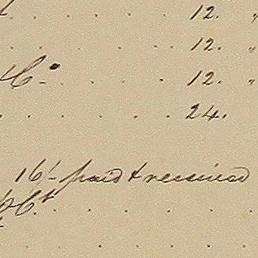 12. "
12. "
12. "
24.
16/- paid & received